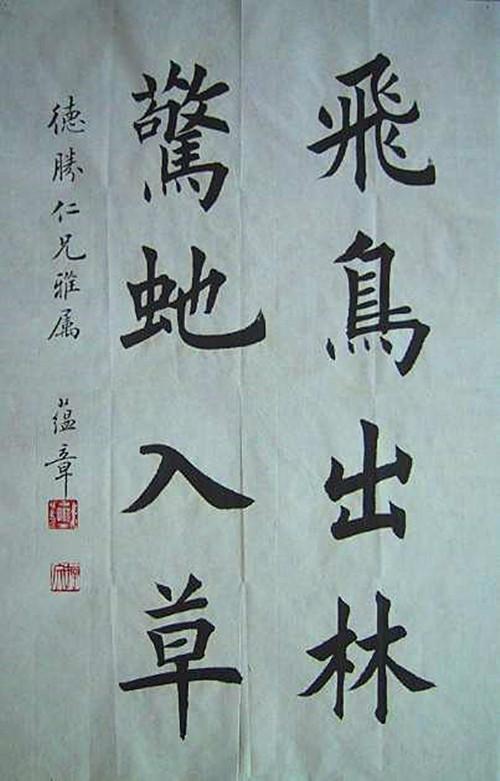 飛鳥出林
驚虵入草
德勝仁兄雅属
蕴章